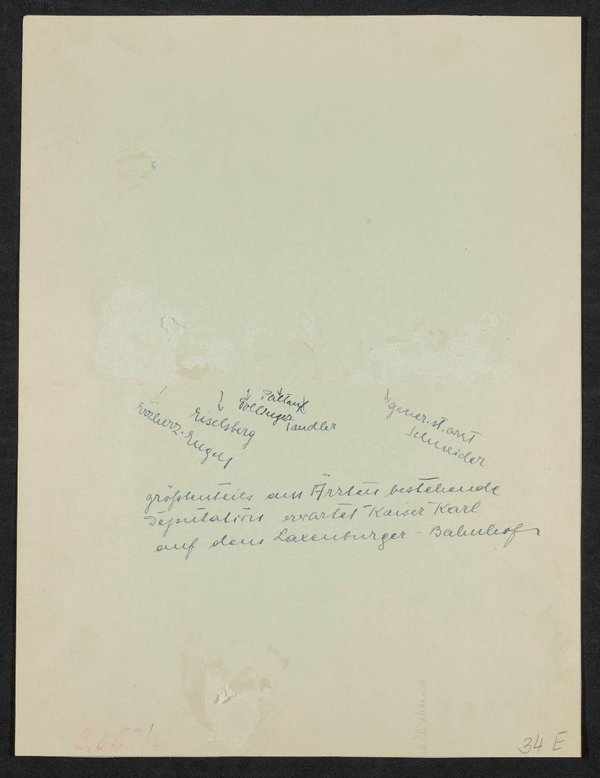 ↓ ↓ ↓ ↓ ↓
Paltauf
Eiselsberg
Tandler
gener.st.arzt
Schneider
Erzherz. Eugen
größtenteils aus Ärzten bestehende
Deputation erwartet Kaiser Karl
auf dem Laxenburger-Bahnhof
34 E